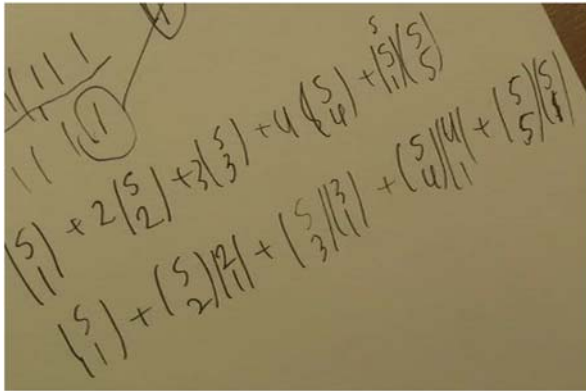 1
1 1 1 1
1 1 1 1
(5 1) + 2(5 2) + 3(5 3) + 4(5 4) + 5(5 1)(5 5)
(5 1) + (5 2)(2 1) + (5 3)(3 1) + (5 4)(4 1) + (5 5)(5 1)